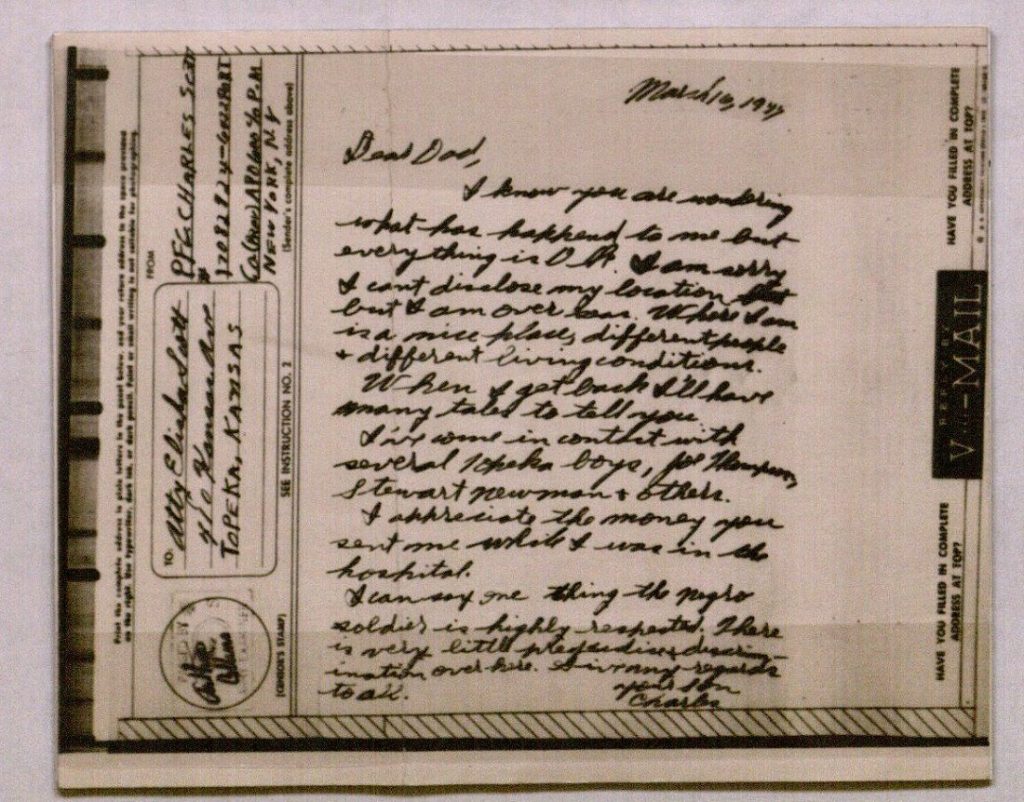 March 10, 1944
Dear Dad,
I know you are wondering
what has happend to me but
everything is O.K. I am sorry
I cant disclose my location
but I am over seas. Where I am
is a nice place, different people
+ different living conditions.
When I get back I'll have
many tales to tell you
I've come in contact with
several Topeka boys, Joe Thompson,
Stewart Newman + others.
I appreciate the money you
sent me while I was in the
hospital.
I can say one thing the negro
soldier is highly respected. There
is very little prejudice + discrim-
ination over here. Give my regards
to all.
your Son
Charles
Print the complete address in plain letters in the panel below, and your return address in the space provided
on the right. Use typewriter, dark ink, or dark pencil. Faint or small writing is not suitable for photographing.
TO:
Atty Elisha Scott
Kansas Ave
TOPEKA, KANSAS
FROM
PFC CHARLES SCOTT
APO 600 % P.M.
NEW YORK, N.Y
(Sender's complete address above)
SEE INSTRUCTION NO. 2
(CENSOR'S STAMP)
HAVE YOU FILLED IN COMPLETE
ADDRESS AT TOP?
REPLY BY
V···—MAIL
HAVE YOU FILLED IN COMPLETE
ADDRESS AT TOP?